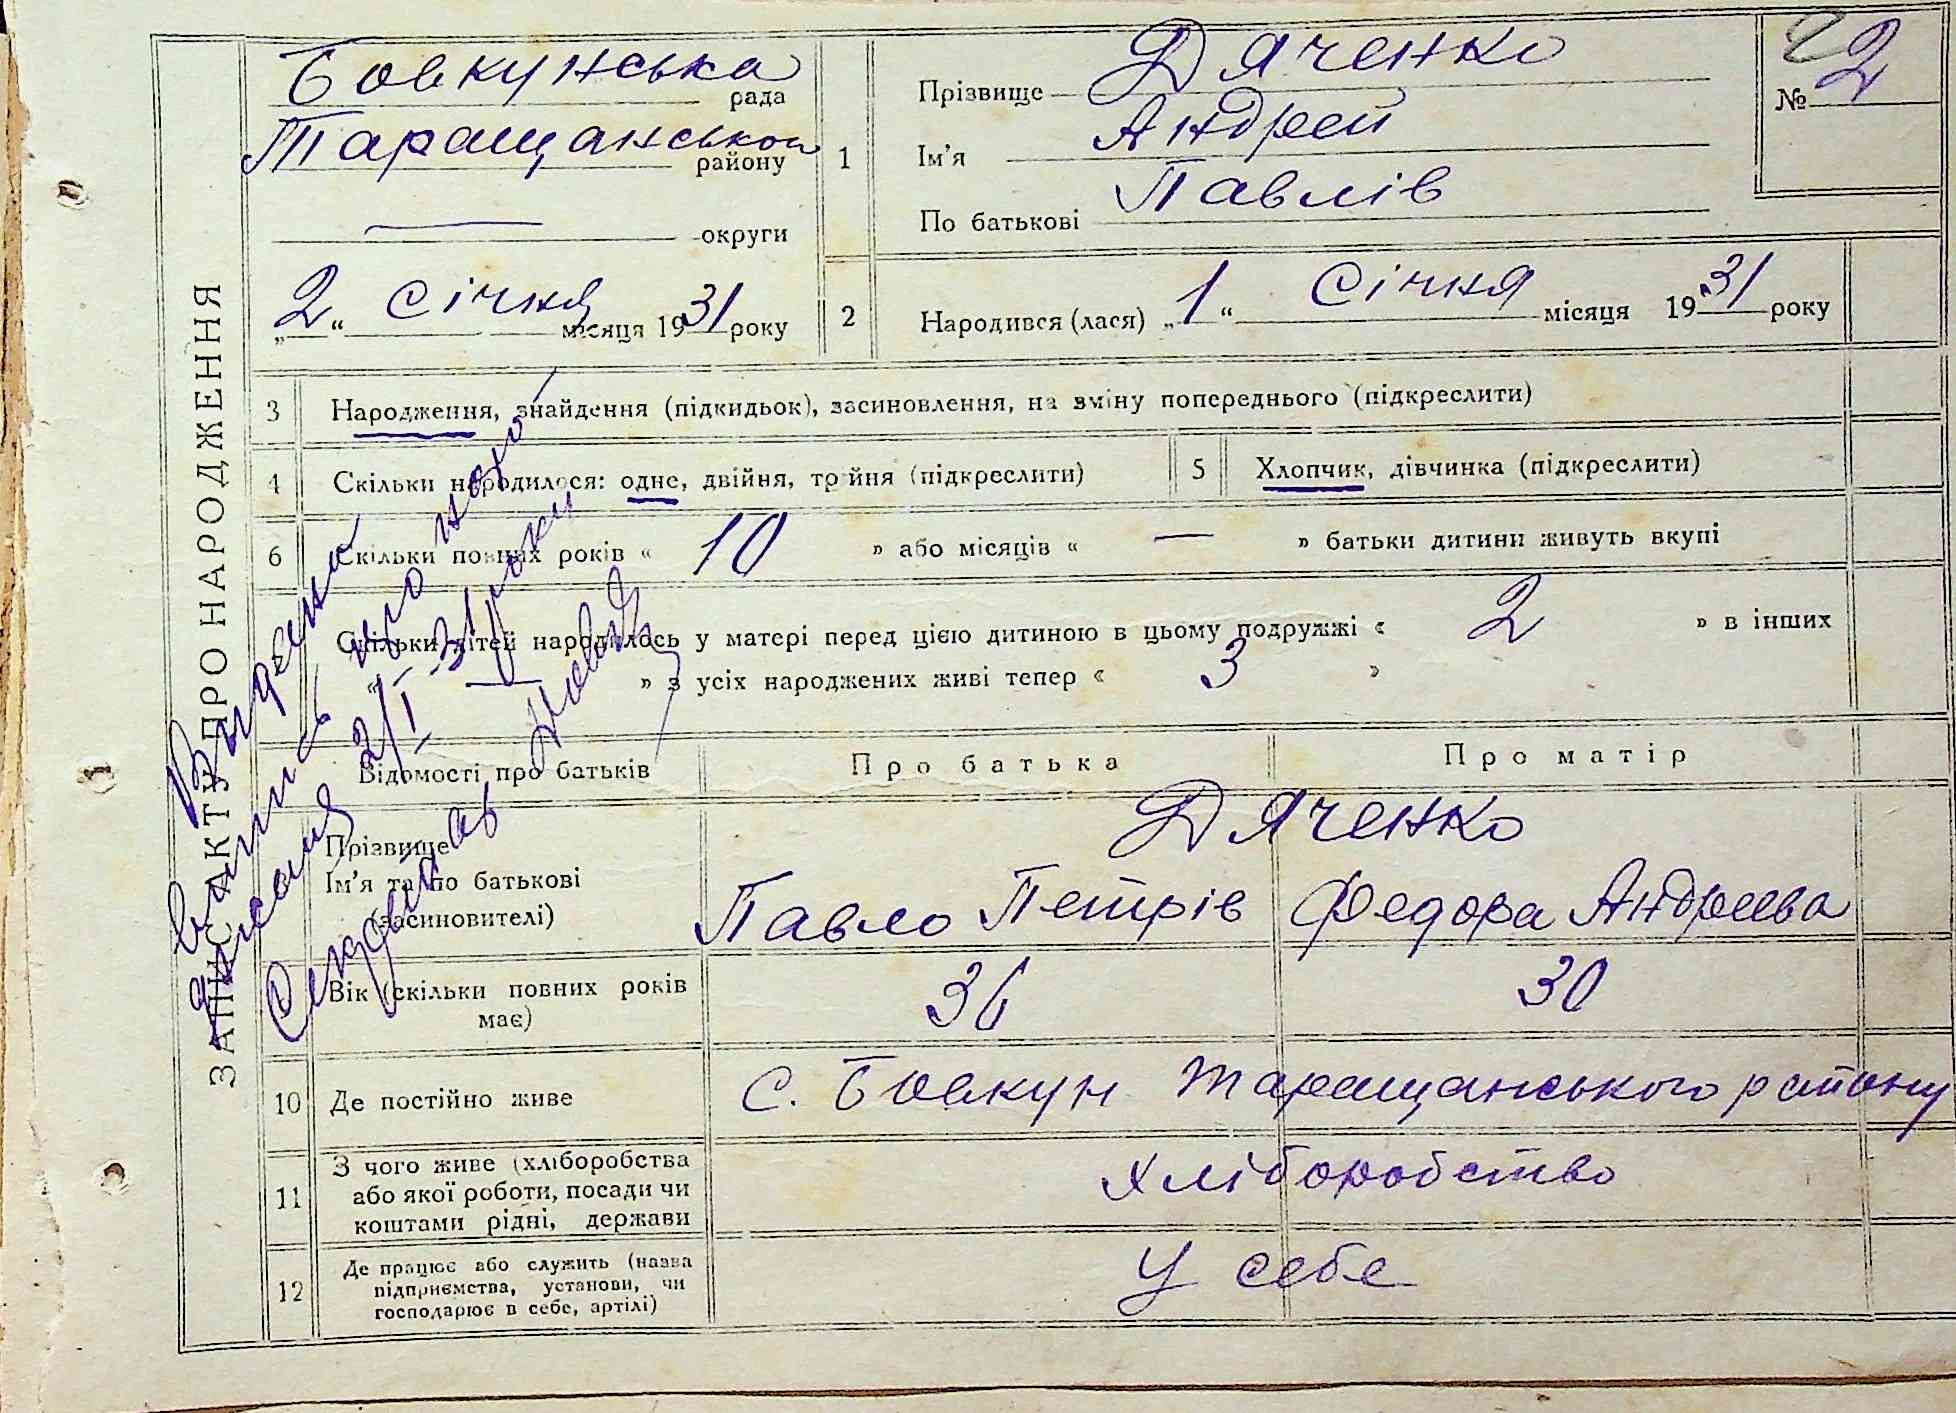 ЗАПИС АКТУ ПРО НАРОДЖЕННЯ
Бовкунська рада
Таращанської району
— округи
„2“ січня місяця 1931 року
1
Прізвище Дяченко
Ім'я Андрей
По батькові Павлів
№ 2
2 Народився (лася) „1“ Січня місяця 1931 року
3 Народження, знайдення (підкидьок), засиновлення, на зміну попереднього (підкреслити)
4 Скільки народилося: одне, двійня, трійня (підкреслити)
5 Хлопчик, дівчинка (підкреслити)
6 Скільки повних років « 10 » або місяців « — » батьки дитини живуть вкупі
Скільки дітей народилось у матері перед цією дитиною в цьому подружжі « 2 » в інших
« — » з усіх народжених живі тепер « 3 »
Відомості про батьків
Про батька
Про матір
Прізвище
Ім'я та по батькові
(засиновителі)
Дяченко
Павло Петрів
Федора Андреева
Вік (скільки повних років
має)
36
30
10 Де постійно живе
с. Бовкун Таращанського району
11
З чого живе (хліборобства
або якої роботи, посади чи
коштами рідні, держави
Хліборобство
12
Де працює або служить (назва
підприємства, установи, чи
господарює в себе, артілі)
У себе
2/I-31 року